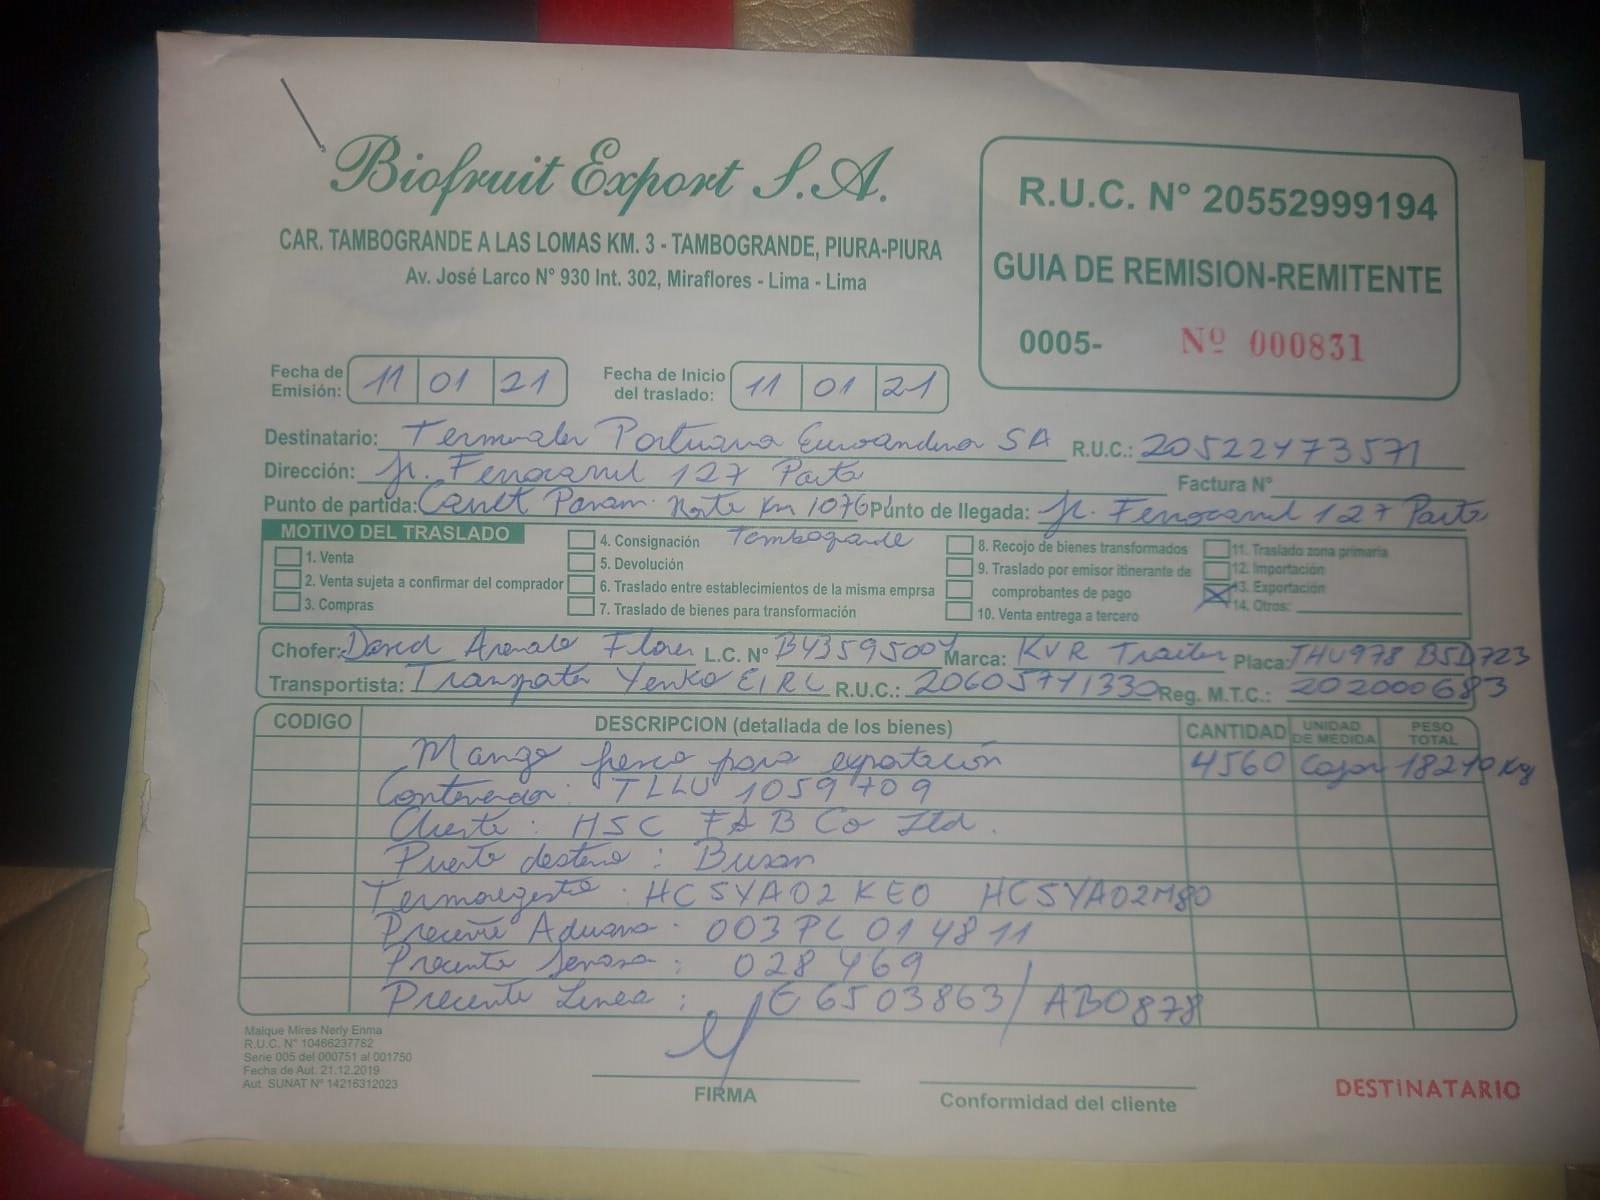 Biofruit Export S.A.
CAR. TAMBOGRANDE A LAS LOMAS KM. 3 - TAMBOGRANDE, PIURA-PIURA
Av. José Larco N° 930 Int. 302, Miraflores - Lima - Lima
R.U.C. N° 20552999194
GUIA DE REMISION-REMITENTE
0005- Nº 000831
Fecha de Emisión: 11 01 21 Fecha de Inicio del traslado: 11 01 21
Destinatario: Terminales Portuarios Euroandinos SA R.U.C.: 20522473571
Dirección: Jr. Ferrocarril 127 Paita Factura N°
Punto de partida: Carret Panam. Norte Km 1076 Punto de llegada: Jr. Ferrocarril 127 Paita
Tambogrande
MOTIVO DEL TRASLADO
1. Venta
2. Venta sujeta a confirmar del comprador
3. Compras
4. Consignación
5. Devolución
6. Traslado entre establecimientos de la misma emprsa
7. Traslado de bienes para transformación
8. Recojo de bienes transformados
9. Traslado por emisor itinerante de
comprobantes de pago
10. Venta entrega a tercero
11. Traslado zona primaria
12. Importación
13. Exportación
14. Otros:
Chofer: David Flores L.C. N° B43595007 Marca: KVR Trailer Placa: B5D723
Transportista: Yenko EIRL R.U.C.: 20605771330 Reg. M.T.C.: 202000683
CODIGO DESCRIPCION (detallada de los bienes) CANTIDAD UNIDAD DE MEDIDA PESO TOTAL
Mango fresco para exportación 4560 Cajas 18240 Kg
Contenedor: TLLU 1059709
Cliente: HSC F&B Co Ltd.
Puerto destino: Busan
Termoregistro: HC5YA02KE0 HC5YA02M80
Precinto Aduana: 003PL014811
Precinto Senasa: 028469
Precinto Linea: E6503863 / AB0878
Maique Mires Nerly Enma
R.U.C. N° 10466237762
Serie 005 del 000751 al 001750
Fecha de Aut. 21.12.2019
Aut. SUNAT Nº 14216312023
FIRMA
Conformidad del cliente
DESTINATARIO